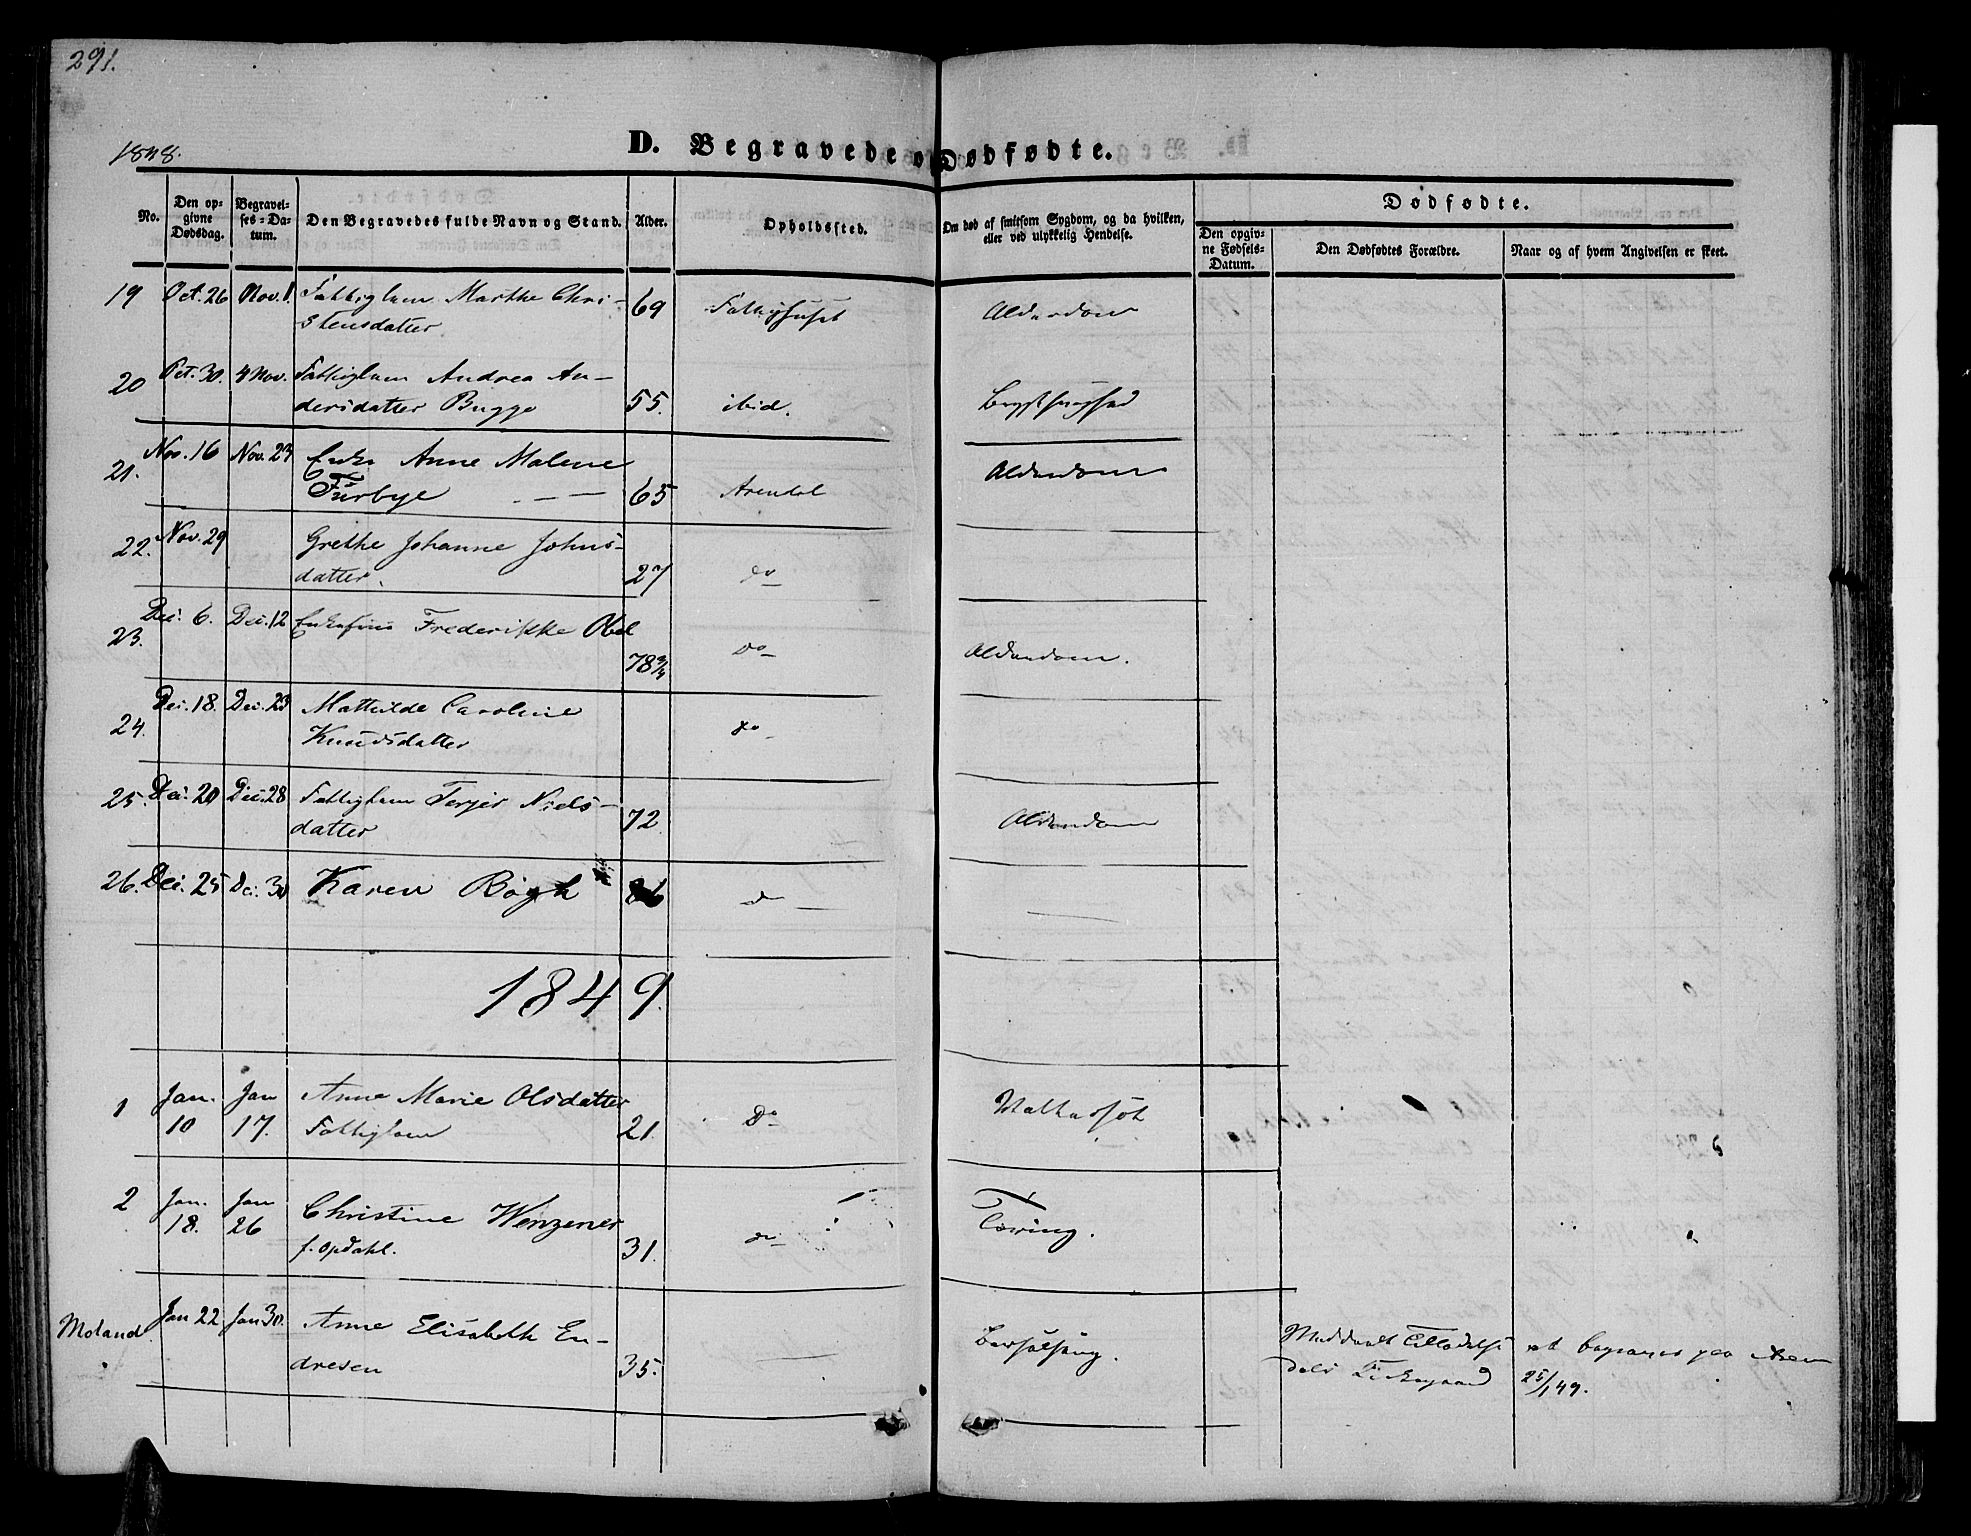 291.
1848.
D. Begravede o Dødfødte.
No.
Den opgivne Dødsdag.
Begravelses-Datum.
Den Begravedes fulde Navn og Stand.
Alder.
Opholdssted.
Om død af smitsom Sygdom, og da hvilken, eller ved ulykkelig Hendelse.
Dødfødte.
Den opgivne Fødsels-Datum.
Den Dødfødtes Forældre.
Naar og af hvem Angivelsen er skeet.
19 Oct. 26 Nov. 1. Fattiglem Marthe Chri-
stensdatter 69 Fattighuset Alderdom
20 Oct. 30. 4 Nov. Fattiglem Andrea An-
dersdatter Bugge 55. ibid. Brystsyghed
21. Nov. 16 Nov. 23 Enke Anne Malene
Furbye 65 Arendal Alderdom
22. Nov. 29 Grethe Johanne Johns-
datter. 27 do
23. Dec. 6. Dec. 12 Frederikke Obel
78 3/4 Do Alderdom.
24. Dec. 18. Dec. 23 Mathilde Caroline
Knudsdatter do
25. Dec. 20 Dec. 28 Fattiglem Terjer Niels-
datter 72. Alderdom
26. Dec. 25 Dec. 30 Karen Bøgh d
1849.
1 Jan. 10 Jan 17. Anne Marie Olsdatter
Fattiglem 21. Do Vattersot
2 Jan. 18. Jan 26 Christine Wenzener
f. Opdahl. 31. do Tæring.
Moland Jan 22. Jan 30. Anne Elisabeth En-
dresen 35. Barselseng. Meddeelt Tilladelse at begraves paa Aren
dals Kirkegaard 25/1 49.